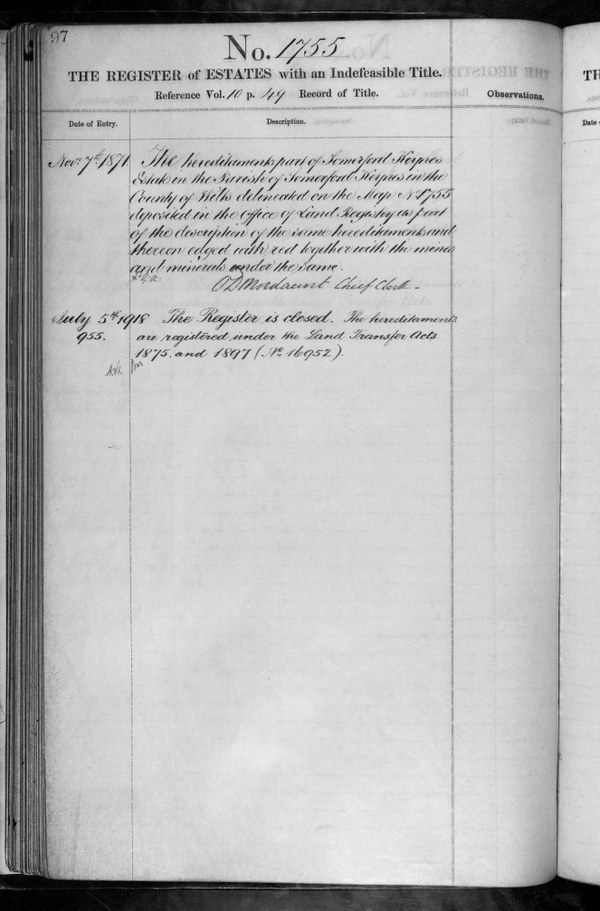 97
No. 1755
THE REGISTER of ESTATES with an Indefeasible Title.
Reference Vol. 10 p. 49 Record of Title.
Observations.
Date of Entry.
Description.
Novr 7th 1871. The hereditaments part of Somerford Keynes
Estate in the Parish of Somerford Keynes in the
County of Wilts delineated on the Map No 1755
deposited in the Office of Land Registry as part
of the description of the same hereditaments and
thereon edged with red together with the mines
and minerals under the same.
Mordaunt Chief Clerk.
July 5th 1918 The Register is closed. The hereditaments
955. are registered under the Land Transfer Acts
1875 and 1897 (No 16952).
TH
Date